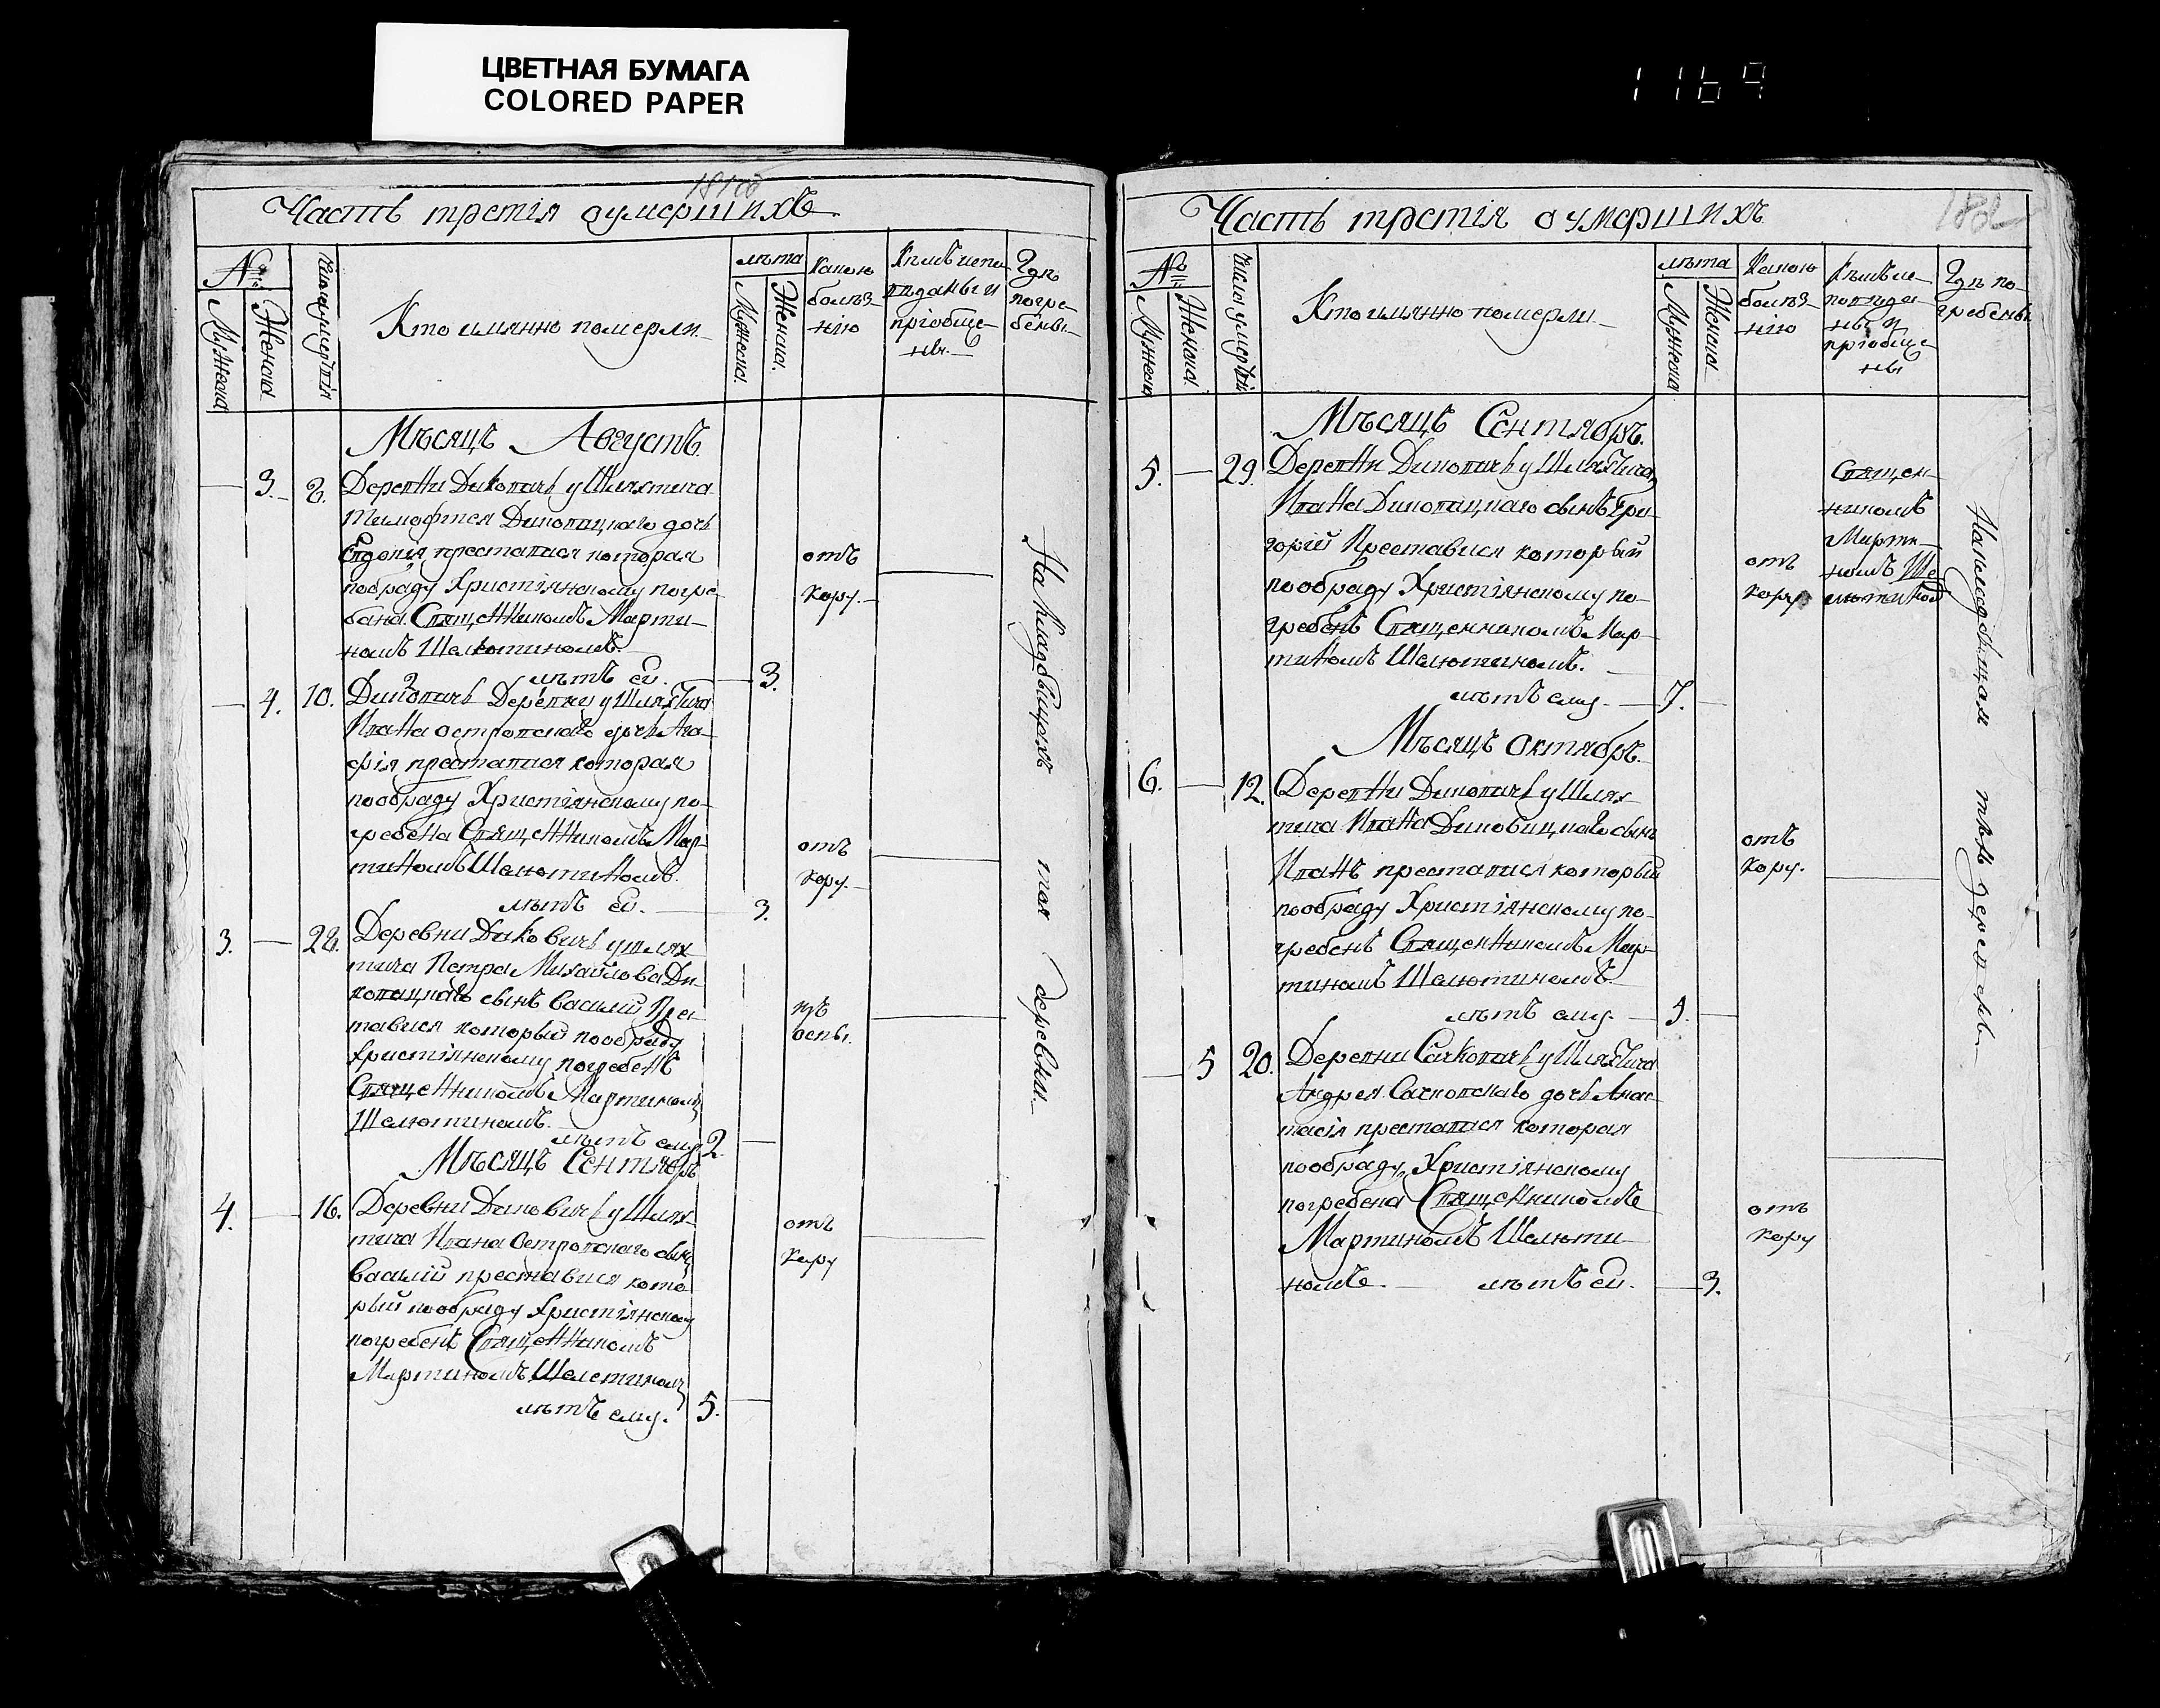 ЦВЕТНАЯ БУМАГА
COLORED PAPER
1169
181об
Часть третія оумершихъ
№
Мужеска
Женска
Число умертвія
Кто имянно померли
лѣта
Мужеска
Женска
Какою
болѣз-
нію
Кѣмъ испо-
вѣданы и
пріобще-
ны
Гдѣ
погре-
бены
Мѣсяцъ Августъ
3. 2. Деревни Диковичъ у Шляхтича
Тимофтея Диковицкаго дочь
Евдокия преставися которая
пообраду Христіянскому погре-
бана Священникомъ Марти-
номъ Шелютиномъ
лѣтъ ей. 3.
отъ
кору.
4. 10. Диковичъ Деревни у Шляхтича
Ивана Островскаго дочь Ага-
фія преставися которая
пообраду Христіянскому по-
гребена Священникомъ Мар-
тиномъ Шелютиномъ.
лѣтъ ей. 3.
отъ
кору.
3. 22. Деревни Диковичъ у шлях-
тича Петра Михайлова Ди-
ковицкаго сынъ Василий Прес-
тависл который пообраду
христіянскому погребенъ
Священникомъ Мартиномъ
Шелютиномъ.
лѣтъ ему 2.
изъ
оспы.
Мѣсяцъ Сентябръ
4. 16. Деревни Диковичъ у Шлях-
тича Ивана Островскаго сынъ
Василій преставися кото-
рый пообраду Христіянскому
погребенъ Священникомъ
Мартиномъ Шелютиномъ
лѣтъ ему. 5.
отъ
кору
На Кладбищахъ тоя деревни
182
Часть третія оумершихъ
№
Мужеска
Женска
Число умертвій
Кто имянно померли
лѣта
Мужеска
Женска
Какою
болѣз-
нію
Кѣмъ ис-
повѣда-
ны и
пріобще-
ны
Гдѣ по-
гребены
Мѣсяцъ Сентябръ.
5. 29. Деревни Диковичъ у Шляхтича
Ивана Диковицкаго сынъ Гри-
горій Преставися который
пообраду Христіянскому по-
гребенъ Священникомъ Мар-
тиномъ Шелютиномъ.
лѣтъ ему. 7.
отъ
кору
Священ-
никомъ
Марти-
номъ Ше
Мѣсяцъ Октябръ.
6. 12. Деревни Диковичъ у Шлях-
тича Ивана Диковицкаго сынъ
Иванъ преставися который
пообраду Христіянскому по-
гребенъ Священникомъ Мар-
тиномъ Шелютиномъ
лѣтъ ему.
отъ
кору.
5 20. Деревни Сачковичъ у Шляхтича
Андрея Сачковскаго дочь Анас-
тасія преставися которая
пообраду Христіянскому
погребена Священникомъ
Мартиномъ Шелюти-
номъ. лѣтъ ей. 3.
отъ
кору
тѣхъ деревень